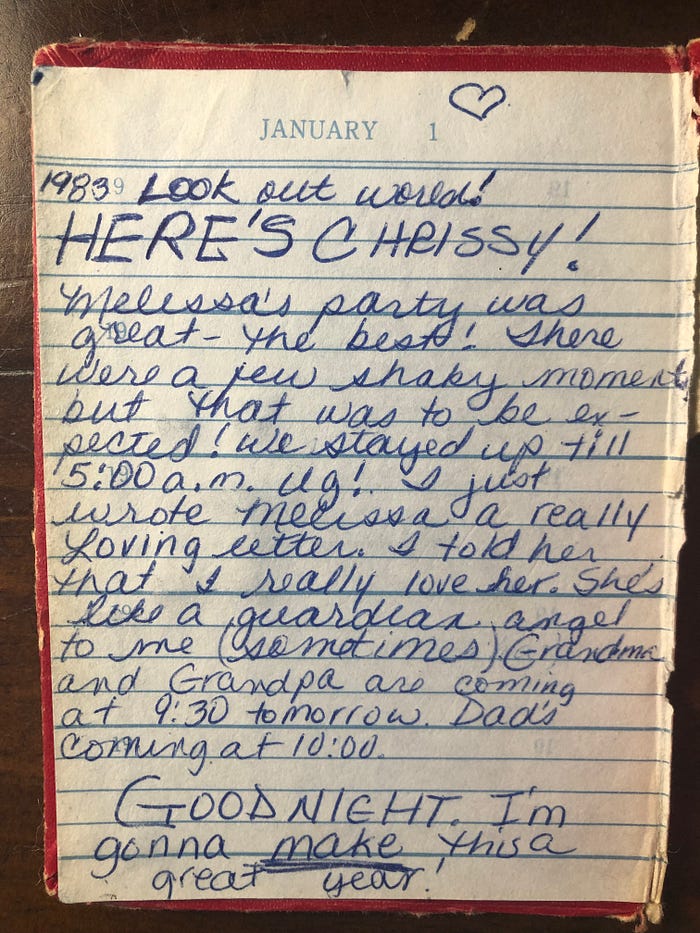 JANUARY 1
19839 Look out world!
HERE'S CHRISSY!
Melissa's party was
great - the best! There
were a few shaky moments
but that was to be ex-
pected! We stayed up till
5:00 a.m. Ug! I just
wrote Melissa a really
Loving letter. I told her
that I really love her. She's
like a guardian angel
to me (sometimes) Grandma
and Grandpa are coming
at 9:30 tomorrow. Dad's
coming at 10:00.
GOODNIGHT. I'm
gonna make this a
great year!